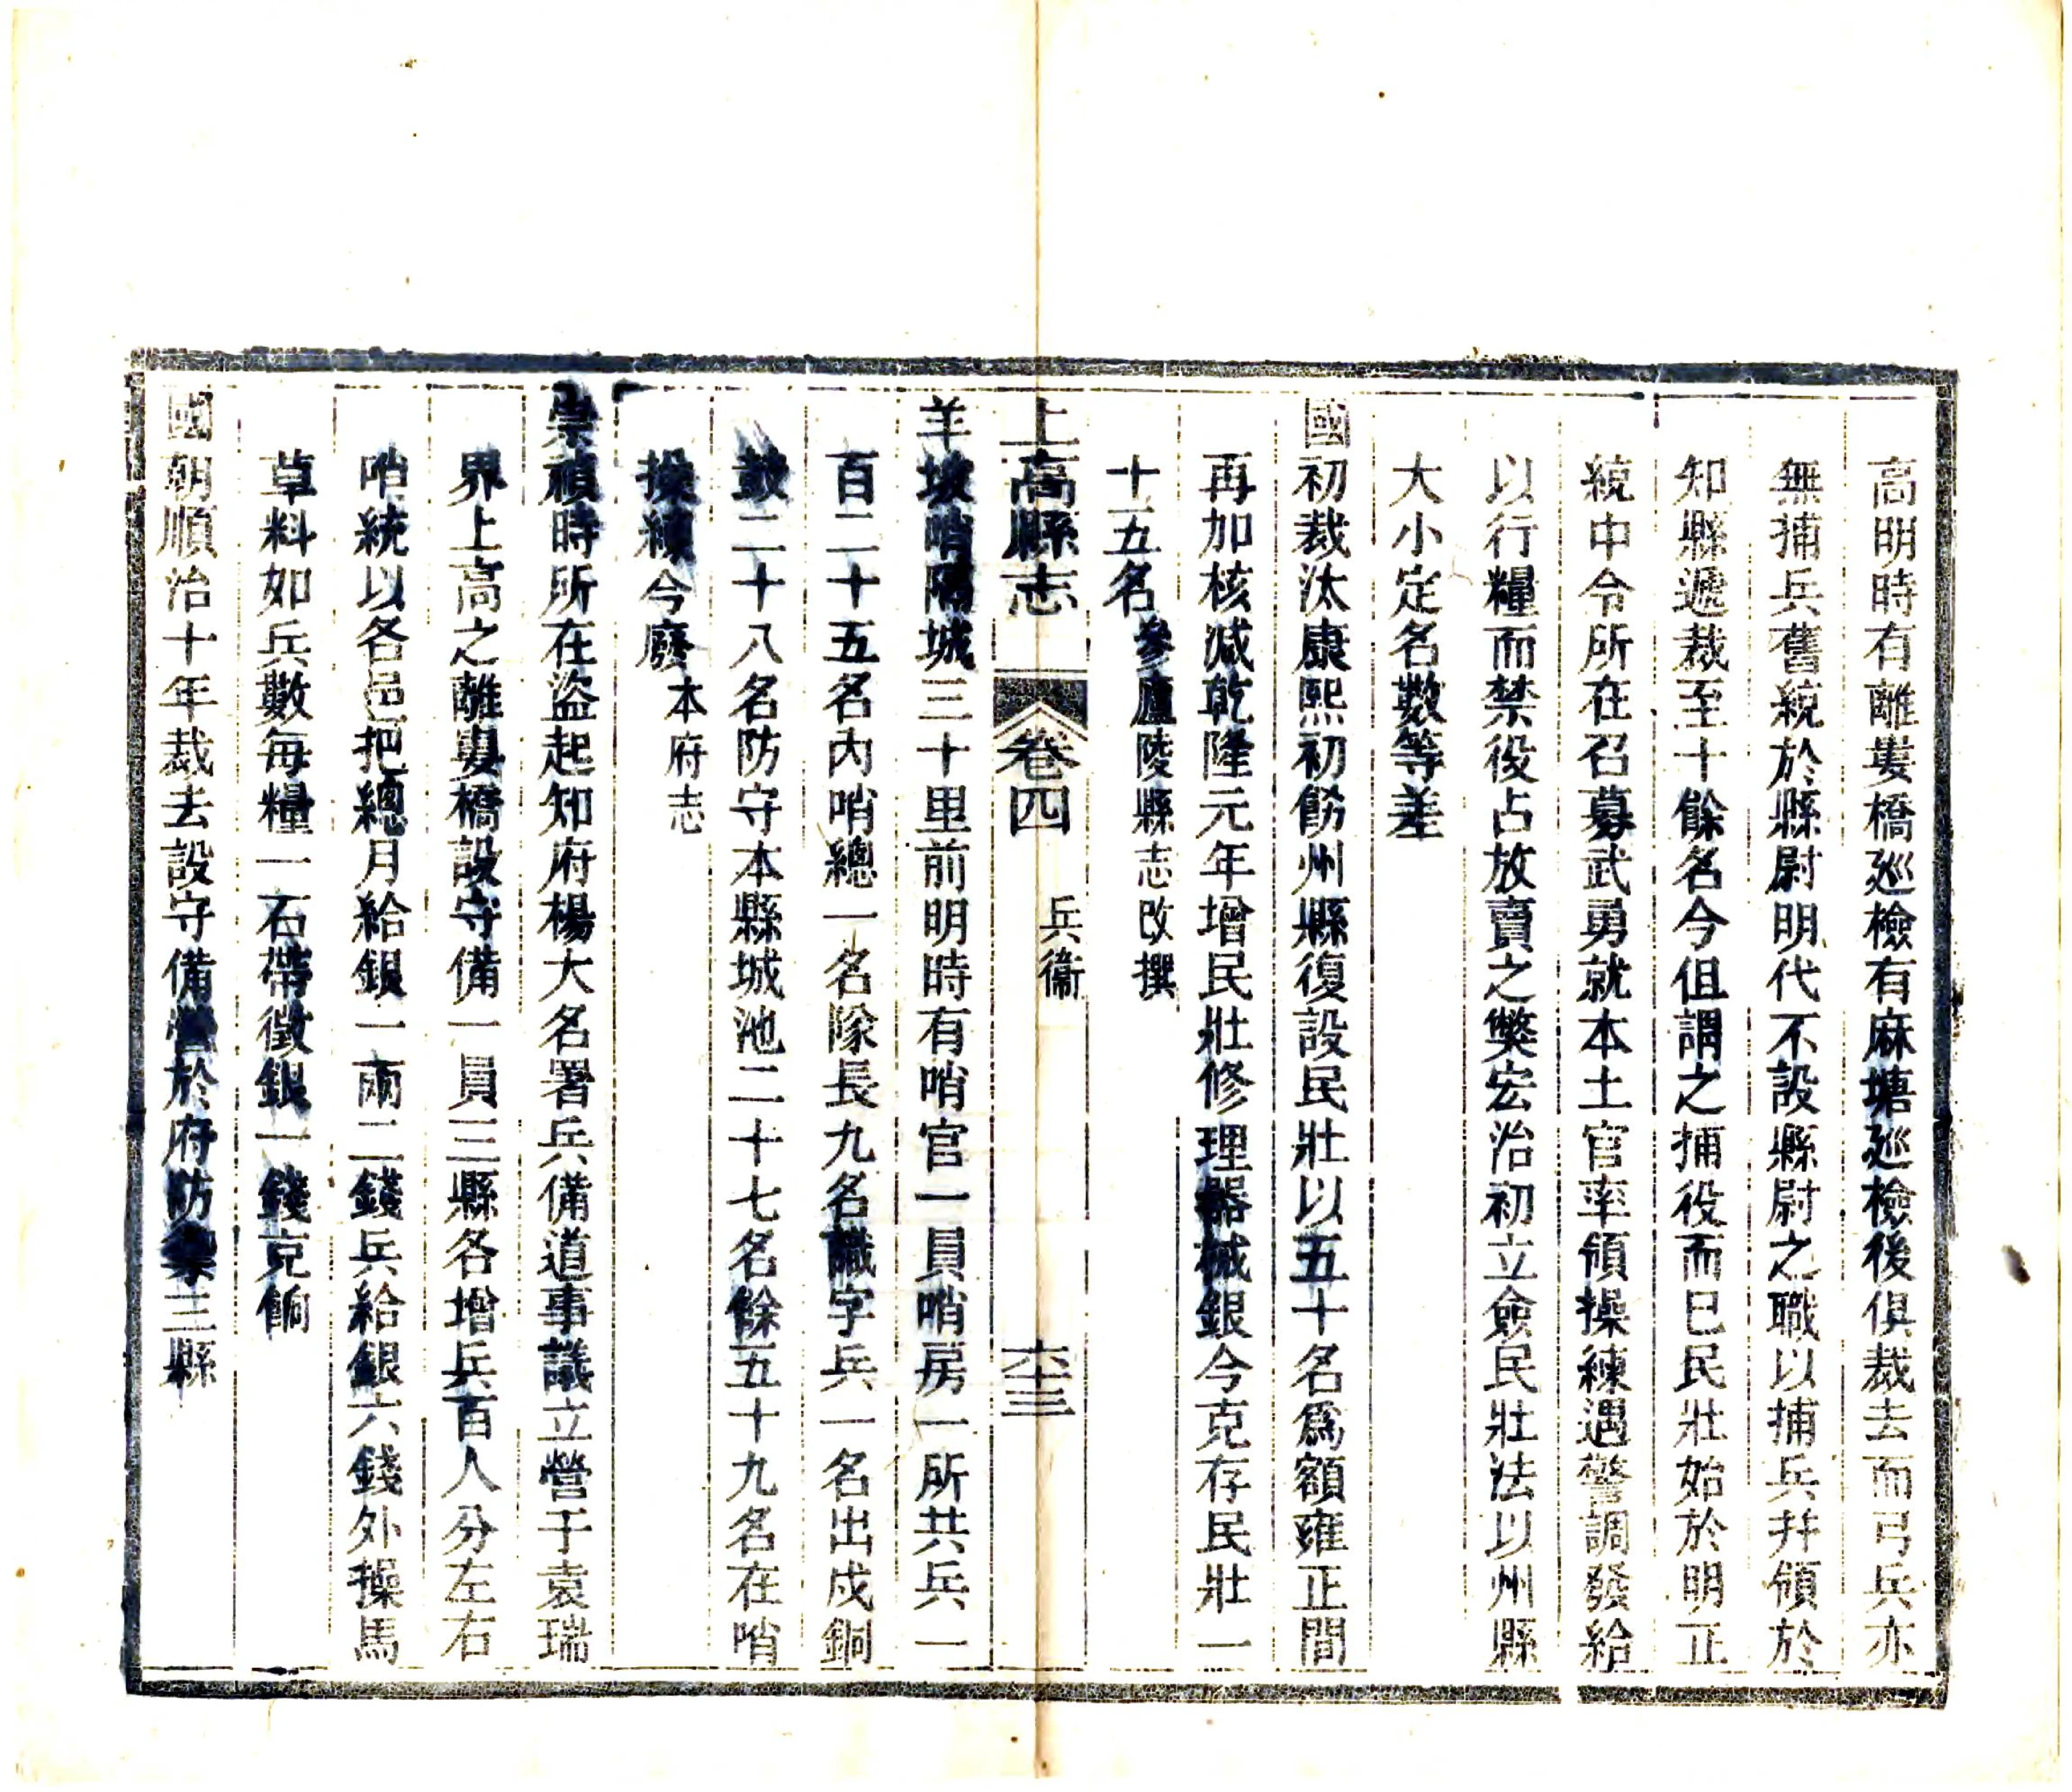 高明時有離婁橋廵檢有麻塘廵檢後俱裁去而弓兵亦
無捕兵舊統於縣尉明代不設縣尉之職以捕兵幷領於
知縣遞裁至十餘名今但謂之捕役而已民壯始於明正
統中令所在召募武勇就本土官率領操練遇警調發給
以行糧而禁役占放賣之獘宏治初立僉民壯法以州縣
大小定名數等差
國初裁汰康熙初飭州縣復設民壯以五十名爲額雍正間
再加核減乾隆元年增民壯修理器械銀今克存民壯一
十五名參廬陵縣志改撰
上高縣志 卷四 兵衞 六三
羊坡哨隔城三十里前明時有哨官一員哨房一所共兵一
百二十五名內哨總一名隊長九名識字兵一名出戍銅
鼓二十八名防守本縣城池二十七名餘五十九名在哨
操練今廢本府志
崇禎時所在盜起知府楊大名署兵備道事議立營于袁瑞
界上高之離婁橋設守備一員三縣各增兵百人分左右
哨統以各邑把總月給銀一兩二錢兵給銀六錢外操馬
草料如兵數每糧一石帶徵銀一錢克餉
國朝順治十年裁去設守備營於府防禦三縣